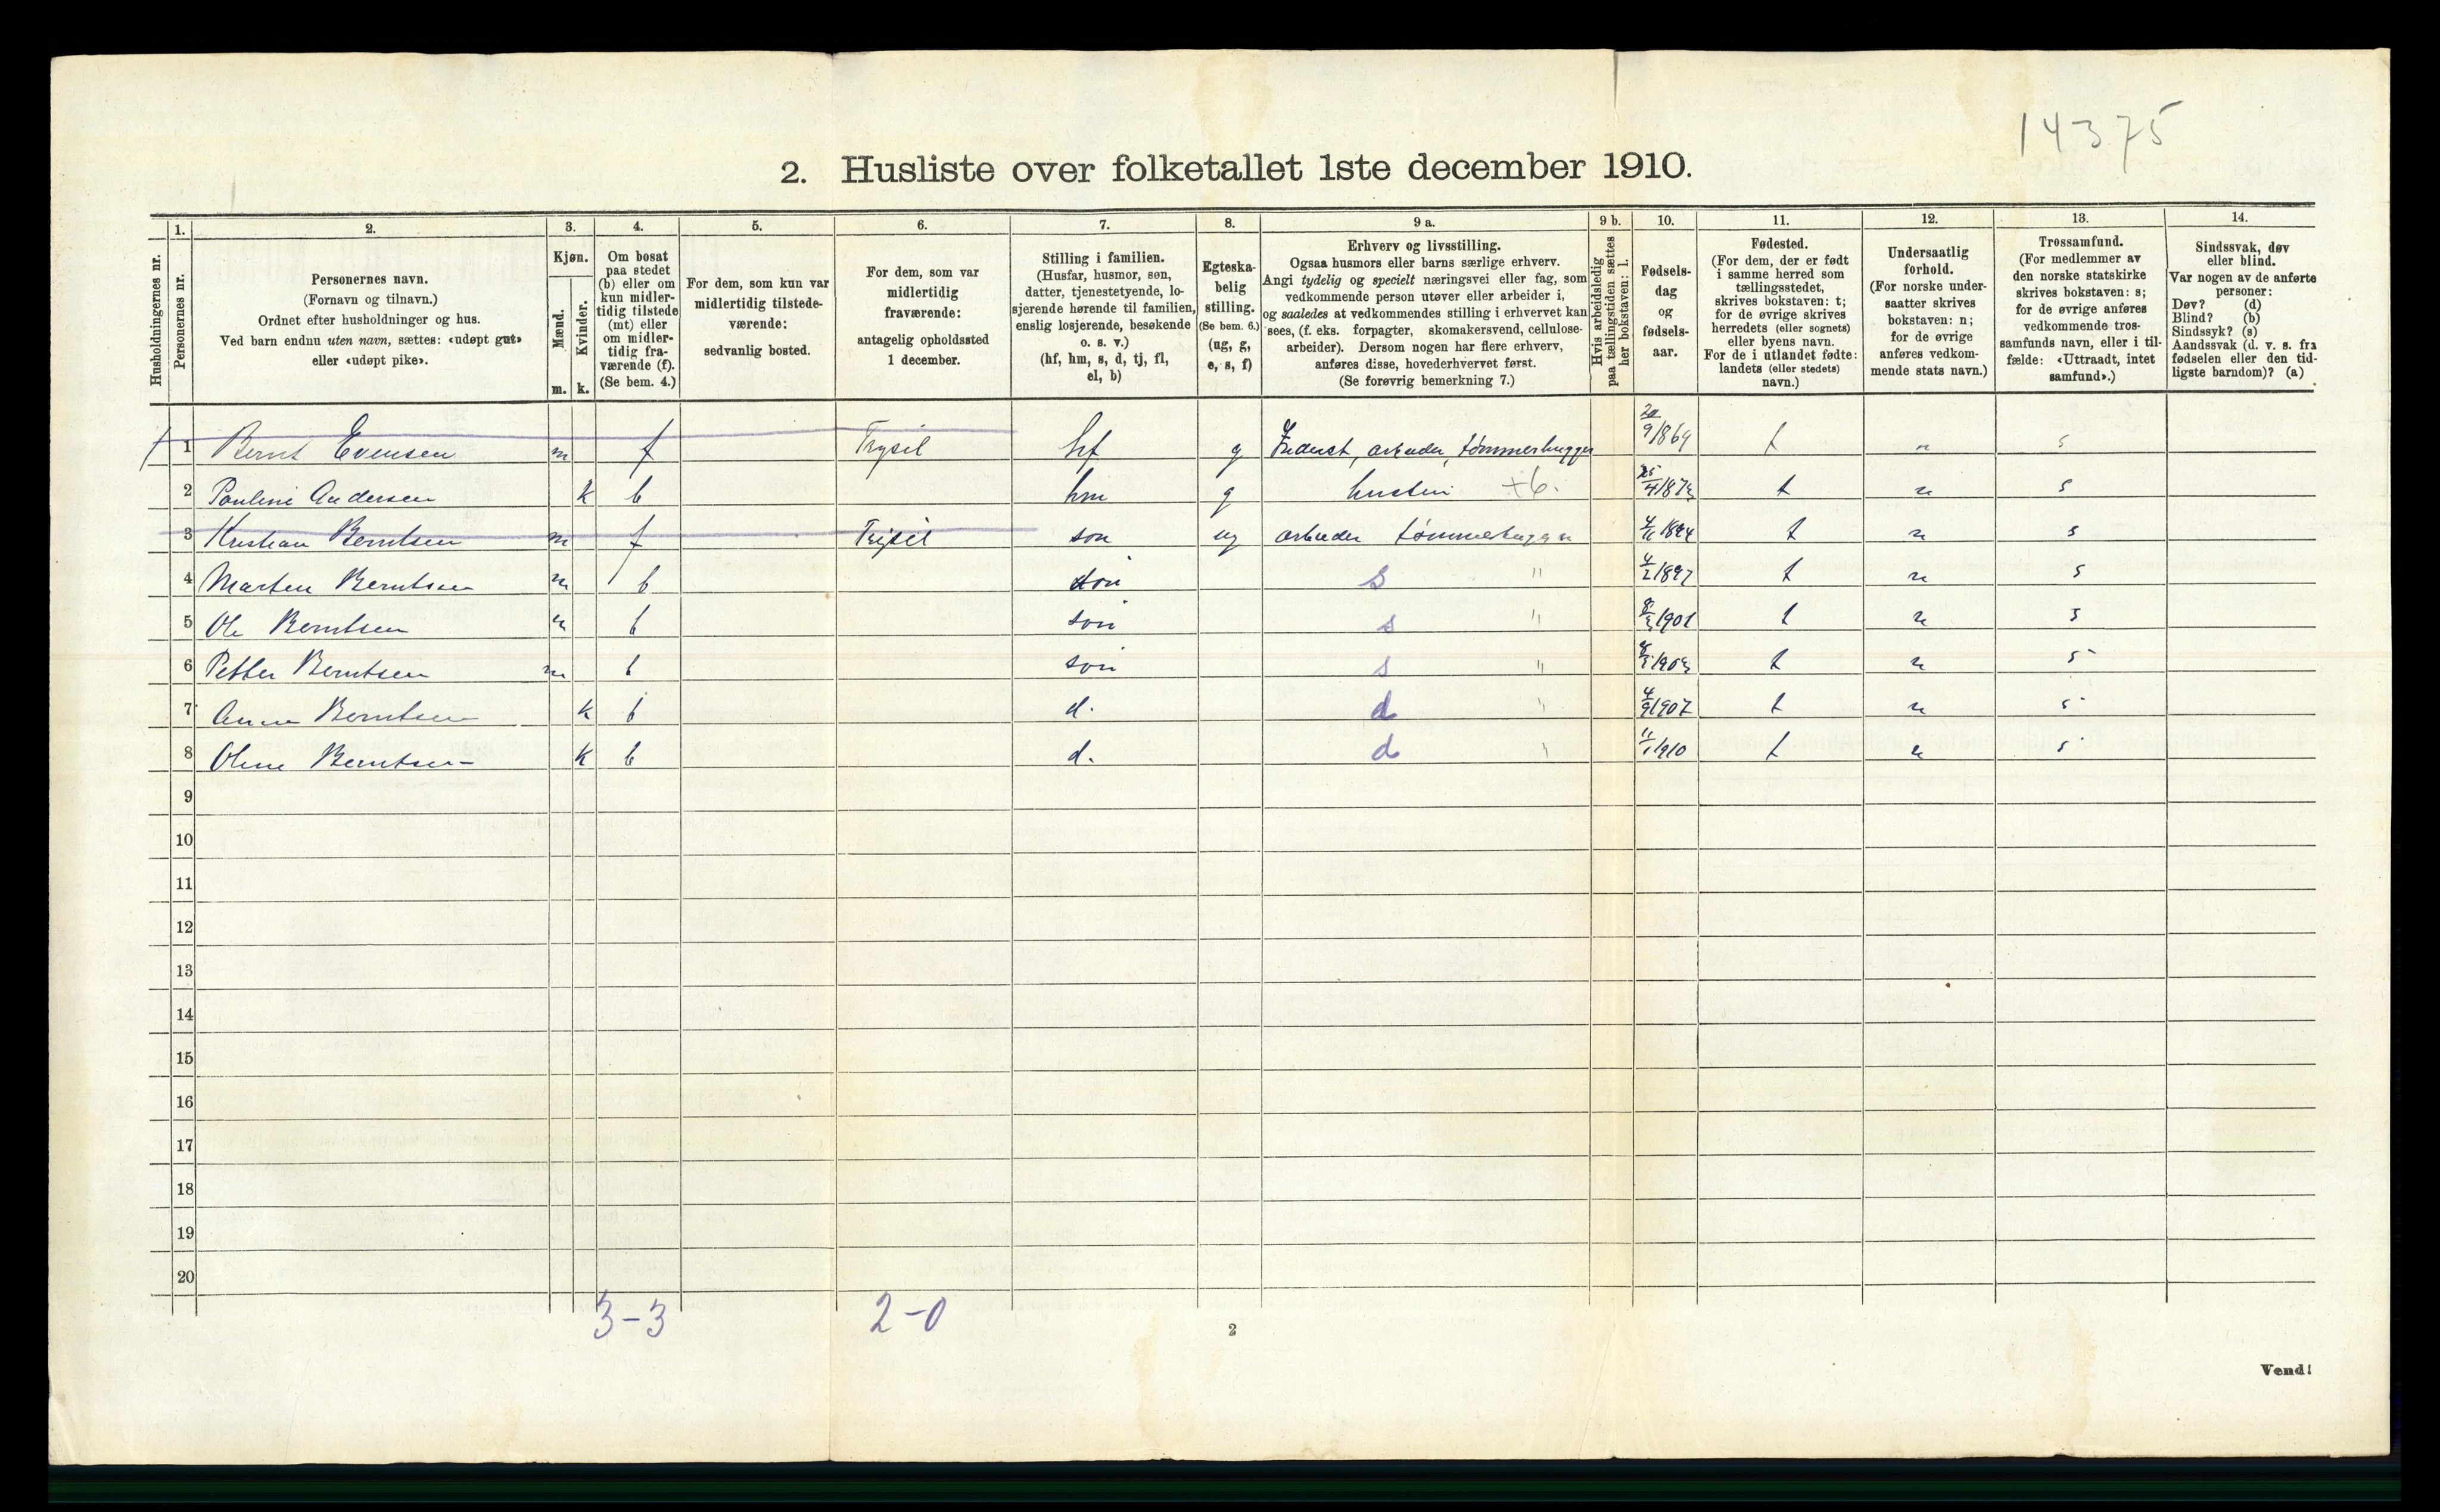 14375
2. Husliste over folketallet 1ste december 1910.
Husholdningernes nr.
1.
Personernes nr.
2.
Personernes navn.
(Fornavn og tilnavn.)
Ordnet efter husholdninger og hus.
Ved barn endnu uten navn, sættes: «udøpt gut»
eller «udøpt pike».
3.
Kjøn.
Mænd.
m.
Kvinder.
k.
4.
Om bosat
paa stedet
(b) eller om
kun midler-
tidig tilstede
(mt) eller
om midler-
tidig fra-
værende (f).
(Se bem. 4.)
5.
For dem, som kun var
midlertidig tilstede-
værende:
sedvanlig bosted.
6.
For dem, som var
midlertidig
fraværende:
antagelig opholdssted
1 december.
7.
Stilling i familien.
(Husfar, husmor, søn,
datter, tjenestetyende, lo-
sjerende hørende til familien,
enslig losjerende, besøkende
o. s. v.)
(hf, hm, s, d, tj, fl,
el, b)
8.
Egteska-
belig
stilling.
(Se bem. 6.)
(ug, g,
e, s, f)
9 a.
Erhverv og livsstilling.
Ogsaa husmors eller barns særlige erhverv.
Angi tydelig og specielt næringsvei eller fag, som
vedkommende person utøver eller arbeider i,
og saaledes at vedkommendes stilling i erhvervet kan
sees, (f. eks. forpagter, skomakersvend, cellulose-
arbeider). Dersom nogen har flere erhverv,
anføres disse, hovederhvervet først.
(Se forøvrig bemerkning 7.)
9 b.
Hvis arbeidsledig
paa tællingstiden sættes
her bokstaven: l.
10.
Fødsels-
dag
og
fødsels-
aar.
11.
Fødested.
(For dem, der er født
i samme herred som
tællingsstedet,
skrives bokstaven: t;
for de øvrige skrives
herredets (eller sognets)
eller byens navn.
For de i utlandet fødte:
landets (eller stedets)
navn.)
12.
Undersaatlig
forhold.
(For norske under-
saatter skrives
bokstaven: n;
for de øvrige
anføres vedkom-
mende stats navn.)
13.
Trossamfund.
(For medlemmer av
den norske statskirke
skrives bokstaven: s;
for de øvrige anføres
vedkommende tros-
samfunds navn, eller i til-
fælde: «Uttraadt, intet
samfund».)
14.
Sindssvak, døv
eller blind.
Var nogen av de anførte
personer:
Døv? (d)
Blind? (b)
Sindssyk? (s)
Aandssvak (d. v. s. fra
fødselen eller den tid-
ligste barndom)? (a)
1 Bernt Evensen m f Trysil hf g Inderst, arbeider, tømmerhugger 20/9 1869 t n s
2 Pauline Andersen k b hm g hustru +6. 25/4 1873 t n s
3 Kristian Berntsen m f Trysil son ug arbeider tømmerhugger 1894 t n s
4 Marten Berntsen m b son s " 4/2 1897 t n s
5 Ole Berntsen m b son s " 1901 t n s
6 Petter Berntsen m b son s " 1903 t n s
7 Anna Berntsen k b d. d " 4/9 1907 t n s
8 Oline Berntsen k b d. d " 11/1 1910 t n s
9
10
11
12
13
14
15
16
17
18
19
20
3-3 2-0
2
Vend!